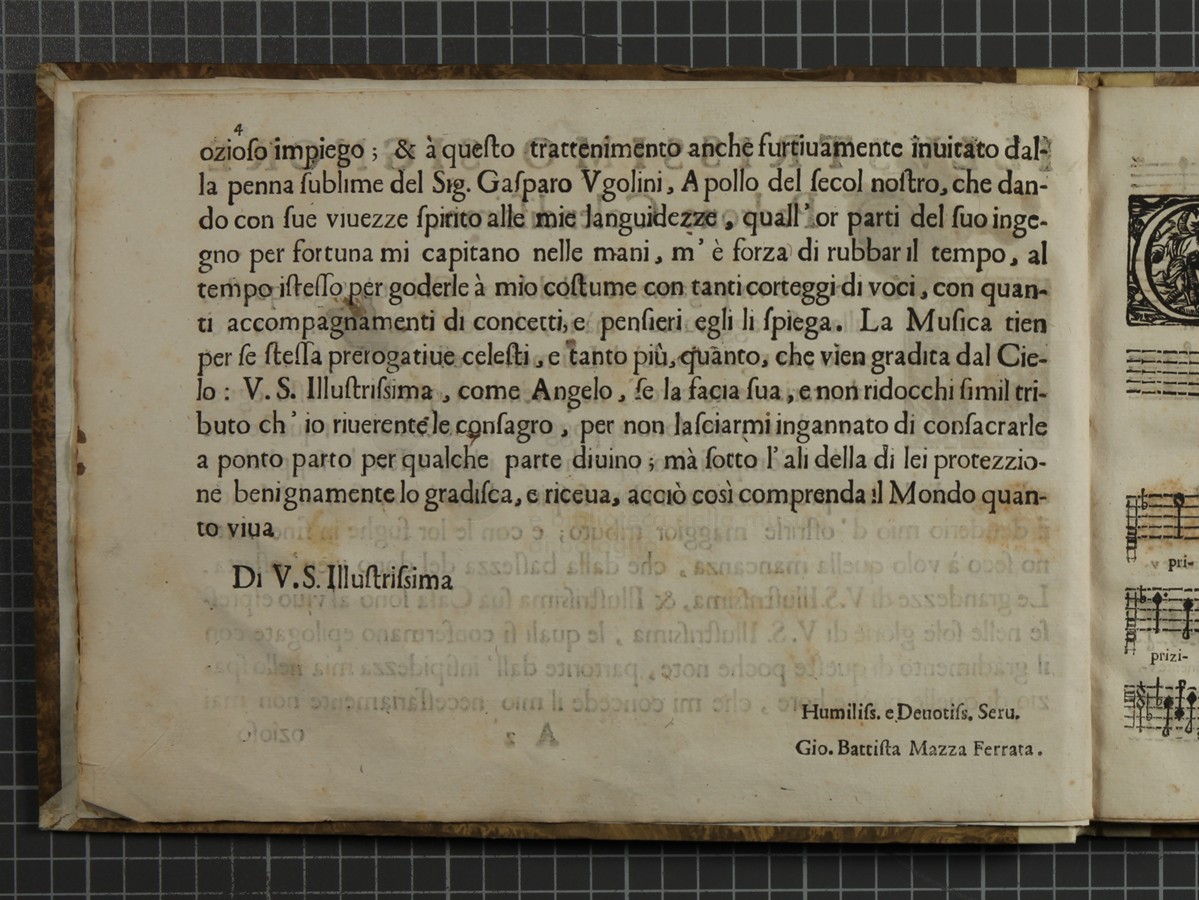 4
ozioſo impiego ; & à queſto trattenimento anche furtiuamente inuitato dal-
la penna ſublime del Sig. Gaſparo Vgolini, Apollo del ſecol noſtro, che dan-
do con ſue viuezze ſpirito alle mie languidezze, quall' or parti del ſuo inge-
gno per fortuna mi capitano nelle mani, m' è forza di rubbar il tempo, al
tempo iſteſſo per goderle à mio coſtume con tanti corteggi di voci, con quan-
ti accompagnamenti di concetti, e penſieri egli li ſpiega. La Muſica tien
per ſe ſteſſa prerogatiue celeſti, e tanto più, quanto, che vien gradita dal Cie-
lo : V. S. Illuſtriſsima, come Angelo, ſe la facia ſua, e non ridocchi ſimil tri-
buto ch' io riuerente le conſagro, per non laſciarmi ingannato di conſacrarle
a ponto parto per qualche parte diuino ; mà ſotto l' ali della di lei protezzio-
ne benignamente lo gradiſca, e riceua, acciò così comprenda il Mondo quan-
to viua
Di V.S. Illuſtriſsima
Humiliſs. e Deuotiſs. Seru.
Gio. Battiſta Mazza Ferrata.
pri-
prizi-